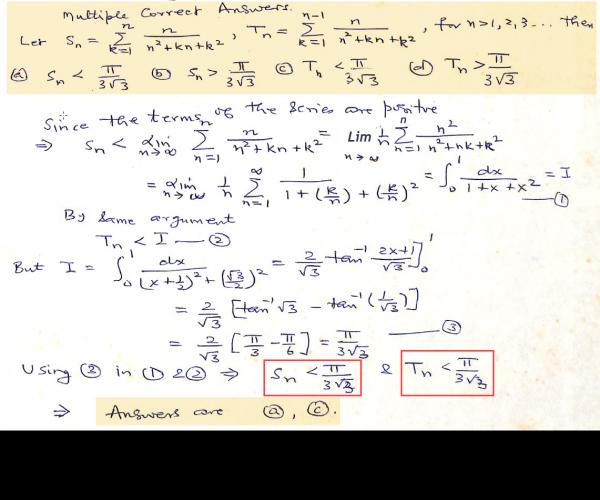 Multiple Correct Answers.
Let Sn = ∑_{k=1}^{n} n/(n²+kn+k²), Tn = ∑_{k=1}^{n-1} n/(n²+kn+k²), for n>1,2,3... then
(a) Sn < π/(3√3) (b) Sn > π/(3√3) (c) Tn < π/(3√3) (d) Tn > π/(3√3)
Since the terms of the series are positive
⇒ Sn < Lim_{n→∞} ∑_{n=1}^{n} n/(n²+kn+k²) = Lim_{n→∞} 1/n ∑_{n=1}^{n} n²/(n²+nk+k²)
= Lim_{n→∞} 1/n ∑_{n=1}^{∞} 1/(1+(k/n)+(k/n)²) = ∫₀¹ dx/(1+x+x²) = I —①
By same argument
Tn < I —②
But I = ∫₀¹ dx/((x+½)²+(√3/2)²) = 2/√3 tan⁻¹ (2x+1)/√3]₀¹
= 2/√3 [tan⁻¹√3 − tan⁻¹(1/√3)]
= 2/√3 [π/3 − π/6] = π/(3√3) —③
Using ③ in ① & ② ⇒ Sn < π/(3√3) & Tn < π/(3√3)
⇒ Answers are (a), (c).